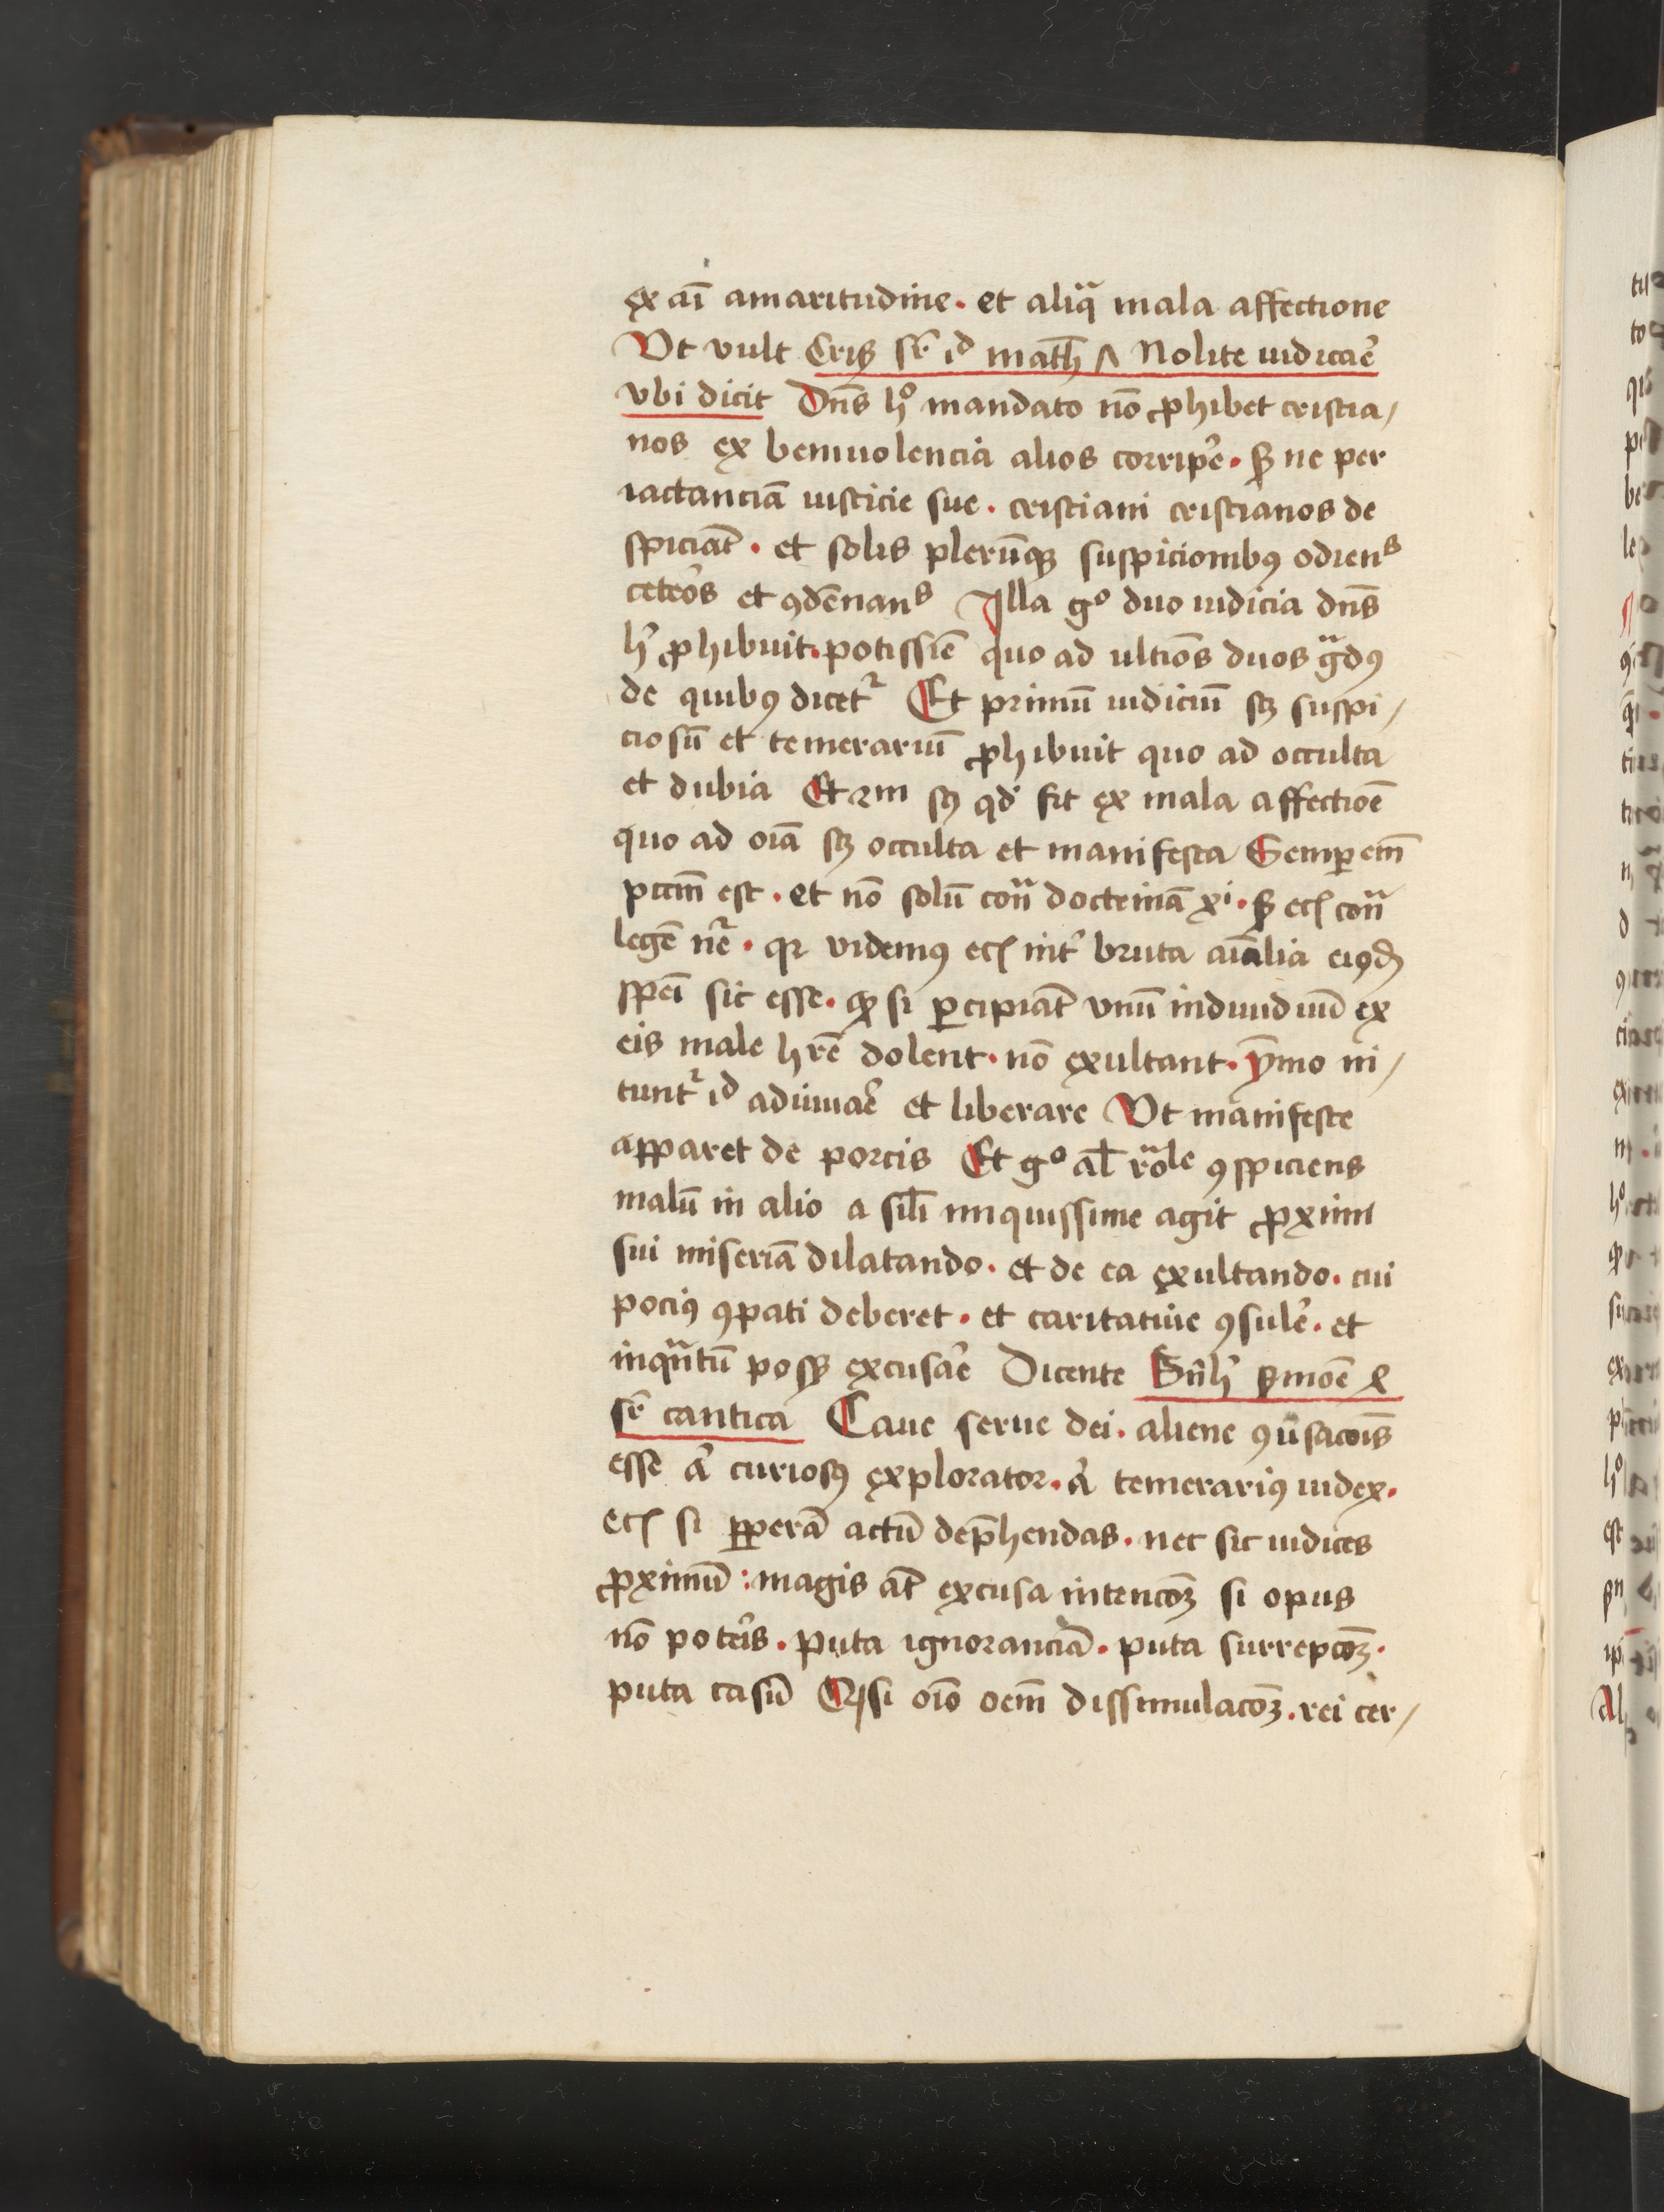 ex aī amaritudine. et aliqͣ mala affectione
Vt vult Cris̄ sr̄ id math ꝟ Nolite iudicar̄e
vbi dicit Dn̄s hͦ mandato nō ꝓhibet cristia/
nos ex beniuolencia alios corriꝑe. sꝫ ne per
iactanciā iusticie sue. cristiani cristianos de
spiciāt. et solis plerūqꝫ suspicionibꝰ odienˢ
ceteōs et ꝯdēnanˢ Illa gͦ duo iudicia dn̄s
h̄ ꝓhibuit. potissīe quo ad ultiōs duos gͣdꝰ
de quibꝰ dicetˀ Et primū iudiciū sꝫ suspi/
ciosū et temerariū ꝓhibuit quo ad occulta
et dubia Et 2m sꝫ qd̄ fit ex mala affectiōe
quo ad oīa sꝫ occulta et manifesta Semꝑ em̄
pccm̄ est. et nō solū conͣ doctrinā xⁱ. sꝫ ecꝫ conͣ
legē nr̄e. qꝛ videmꝰ ecꝫ int̄ bruta aīalia eiꝰdꝫ
spēi sic esse. ꝙ si ꝑcipiāt vnū indiuiduū ex
eis male hr̄e dolent. nō exultant. ȳmo ni/
tuntˀ id adiuuar̄e et liberare Vt manifeste
apparet de porcis Et gͦ al̄ rōͣle ꝯspiciens
malū in alio a sil̄i iniquissime agit ꝓximi
sui miseriā dilatando. et de ea exultando. cui
pociꝰ ꝯpati deberet. et caritatiue ꝯsuler̄e. et
inqͣntū possꝫ excusar̄e Dicente Bn̄h̄ sermoē xl
sr̄ cantica Caue serue dei. aliene ꝯūsacōis
esse a̓ curiosꝰ explorator. a̓ temerariꝰ iudex.
ecꝫ si ꝑperā actū dep̄hendas. nec sic iudices
ꝓximū: magis at̄ excusa intencōꝫ si opus
nō potēis. puta ignoranciā. puta surrepcōꝫ.
puta casū Qꝫ si oīo oem̄ dissimulacōꝫ. rei cer/